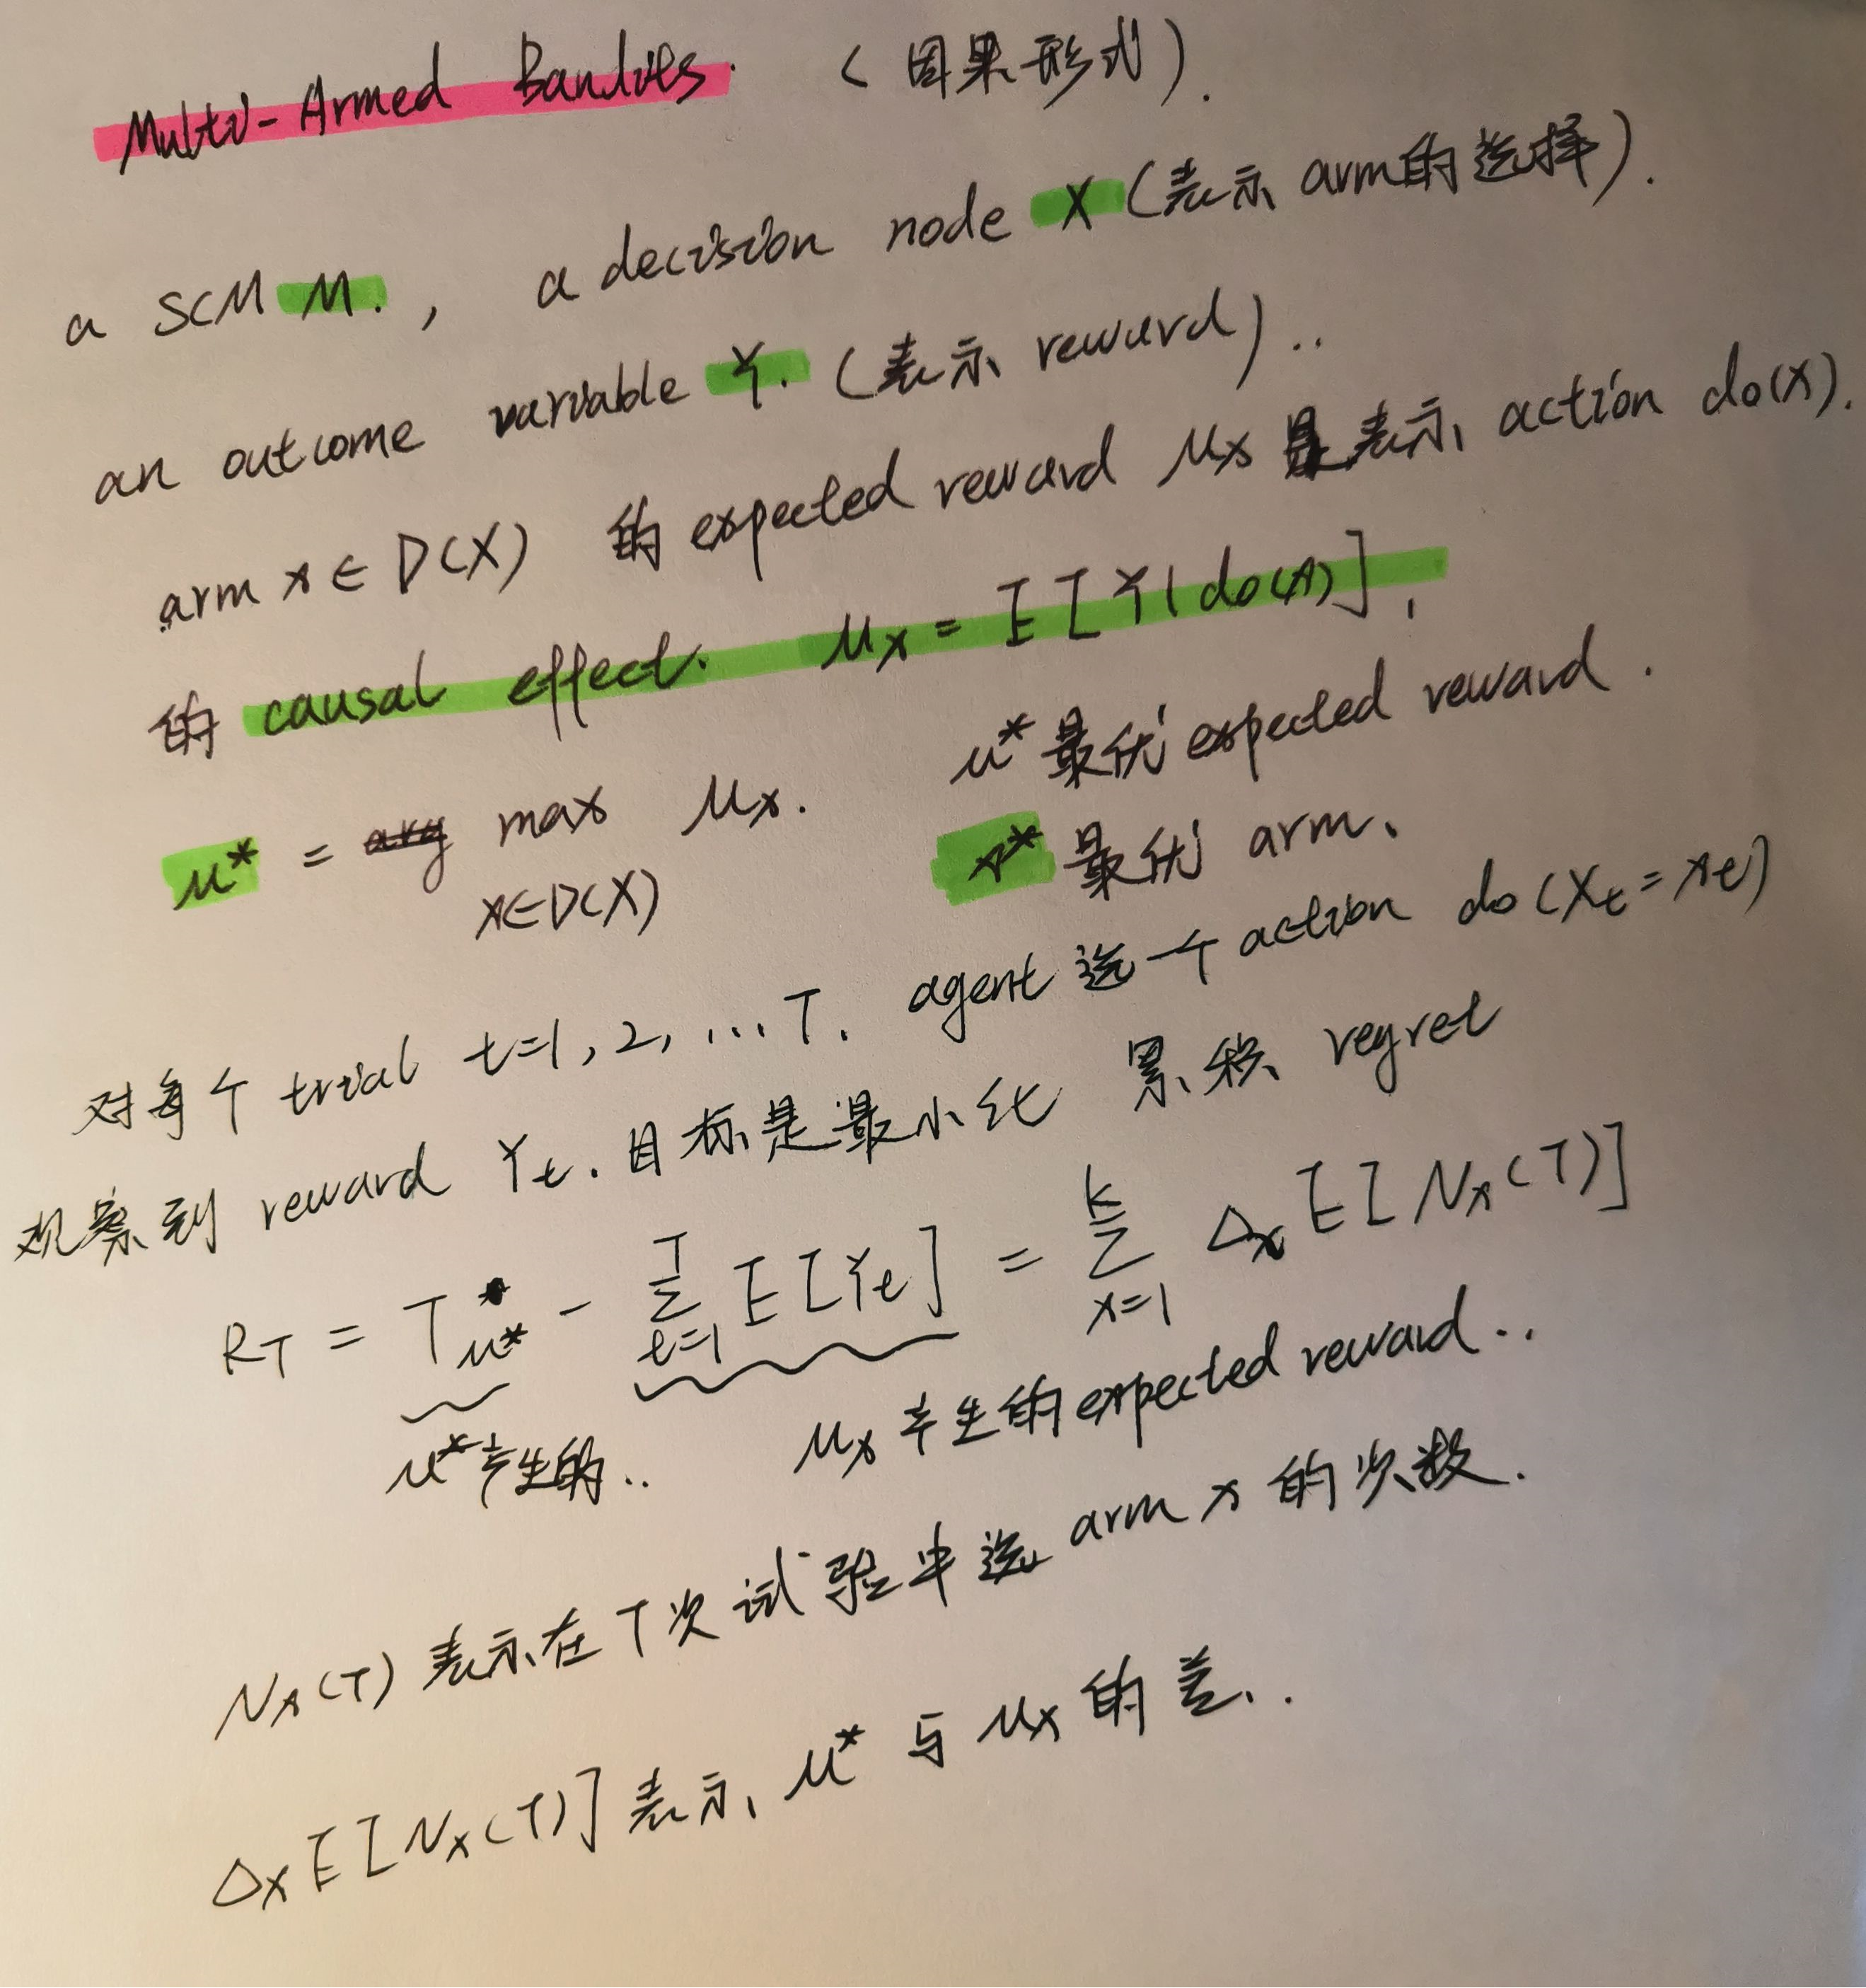 Multi-Armed Bandits. (因果形式).
a SCM M., a decision node X (表示 arm的选择).
an outcome variable Y. (表示 reward)..
arm x ∈ D(X) 的 expected reward μx 是表示 action do(x).
的 causal effect. μx = E[Y|do(x)].
μ* = max μx. μ* 最优 expected reward.
x∈D(X) x* 最优 arm.
对每个 trial t=1, 2, ... T. agent 选一个 action do(Xt = xt)
观察到 reward Yt. 目标是最小化 累积 regret
RT = Tμ* - Σ_{t=1}^{T} E[Yt] = Σ_{x=1}^{K} Δx E[Nx(T)]
μ*产生的.. μx 产生的 expected reward..
Nx(T) 表示在 T次 试验中选 arm x 的次数.
Δx E[Nx(T)] 表示 μ* 与 μx 的差..